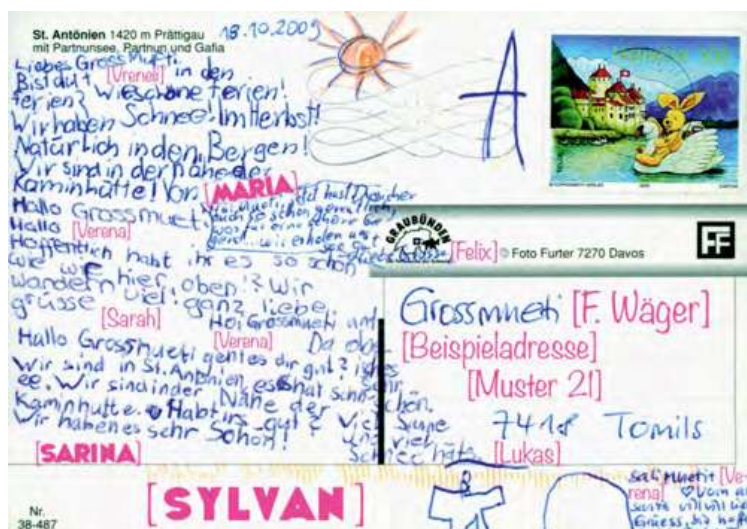 St. Antönien 1420 m Prättigau
mit Partnunsee, Partnun und Gafia
18.10.2009
Liebes GrossMueti
[Vreneli] in den
Bist du
ferien? Wie schöne ferien!
Wir haben Schnee! Im Herbst!
Natürlich in den Bergen!
Wir sind in der Nähe der
Kaminhütte! Von [MARIA]
Hallo Grossmueti
Hallo [Verena]
Hoffentlich habt ihr es so schön
wie wir hier oben!? Wir
wandern viel! ganz liebe
grüsse
[Sarah]
Hoi Grossmueti und
[Verena]
Da oben
Hallo Grossmueti gehtes dir gut?
Wir sind in St. Antönien, es hat schn-
ee. Wir sind in der Nähe der
Kaminhutte. Habt irs gut?
Wir haben es sehr Schön!
[SARINA]
sehr
schön.
Viel Sune
und viel
Schnee häts.
[Lukas]
A
GRAUBÜNDEN
[Felix]
© Foto Furter 7270 Davos
FF
Grossmueti [F. Wäger]
[Beispieladresse]
[Muster 21]
7418 Tomils
[SYLVAN]
sali muetit [Ve-
rena]
Nr.
38-487